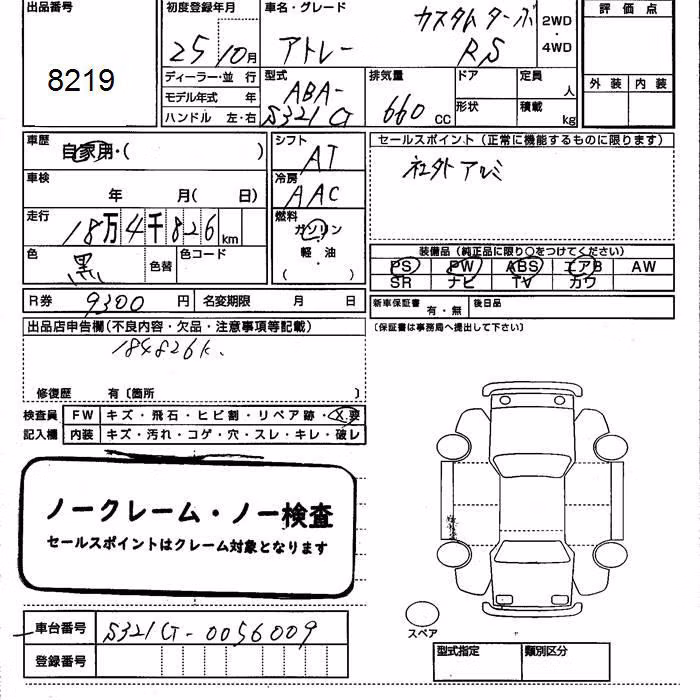 出品番号
8219
初度登録年月
25 10月
ディーラー・並 行
モデル年式 年
ハンドル 左・右
車名・グレード
アトレー
カスタムターボ
RS
2WD
・
4WD
型式
ABA-
S321G
排気量
660 CC
ドア
形状
定員
人
積載
kg
評価点
外装 内装
車歴
自家用・( )
車検
年 月( 日)
走行
18万4千826km
色
黒
色替
色コード
シフト
AT
冷房
AAC
燃料
ガソリン
軽・油
( )
セールスポイント(正常に機能するものに限ります)
社外アルミ
装備品(純正品に限り○をつけてください)
PS PW ABS エアB AW
SR ナビ TV カワ
R券 9300 円 名変期限 月 日
新車保証書 有・無 後日品
(保証書は事務局へ提出して下さい)
出品店申告欄(不良内容・欠品・注意事項等記載)
184826K.
修復歴 有〔箇所 〕
検査員 FW キズ・飛石・ヒビ割・リペア跡・X要
記入欄 内装 キズ・汚れ・コゲ・穴・スレ・キレ・破レ
ノークレーム・ノー検査
セールスポイントはクレーム対象となります
車台番号 S321G-0056009
登録番号
スペア
型式指定 類別区分